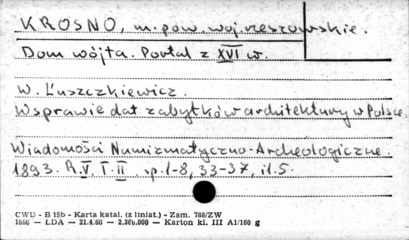 KROSNO, m. pow. woj. rzeszowskie.
Dom wójta. Portal z XVI w.
W. Łuszczkiewicz.
W sprawie dat zabytków architektury w Polsce.
Wiadomości Numizmatyczno-Archeologiczne.
1893. R. V, T. II. p. 1-8, 33-37, il. 5.
CWD - B 15b - Karta katal. (z liniat.) - Zam. 788/ZW
1066 — ŁDA — 21.4.60 — 2.300.000 — Karton kl. III A1/160 g